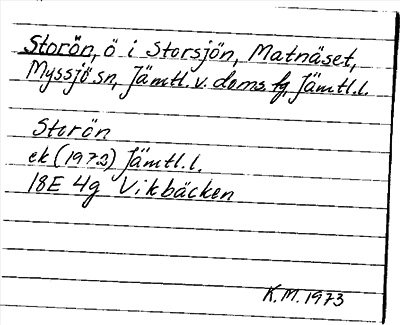 Storön, ö i Storsjön, Matnäset,
Myssjö sn, Jämtl. v. doms.fg, Jämtl.l.
Storön
ek (1973) Jämtl.l.
18E 4g Vikbäcken
K.M. 1973